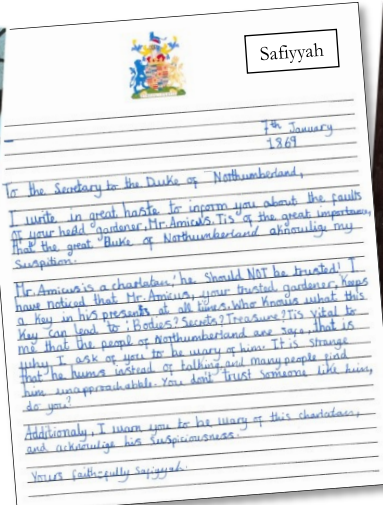 Safiyyah
7th January
1869
To the Secretary to the Duke of Northumberland,
I write in great haste to inform you about the faults
of your head gardener, Mr. Amicus. Tis of the great importance,
that the great Duke of Northumberland aknowlige my
Suspition.
Mr. Amicus is a charlatan, he should NOT be trusted! I
have noticed that Mr. Amicus, your trusted gardener, Keeps
a key in his presents at all times. Who knows what this
Key can lead to: Bodies? Secrets? Treasure? Tis vital to
me that the people of Northumberland are safe, that is
why I ask of you to be wary of him. It is strange
that he hums instead of talking and many people find
him unapproachabble. You dont trust someone like him,
do you?
Additionaly, I warn you to be wary of this charlatan,
and acknowlige his Suspiciousness.
Yours faithfully Safiyyah.